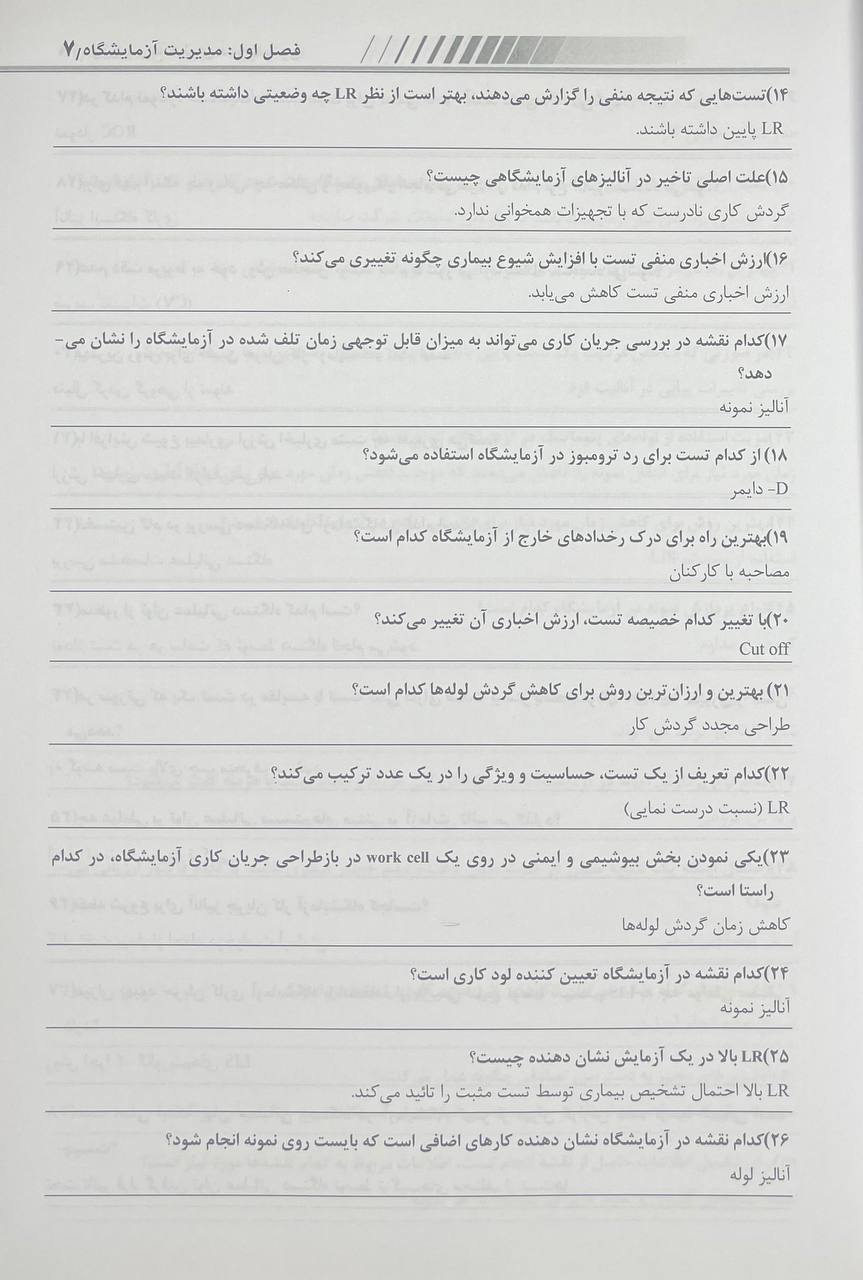 فصل اول: مدیریت آزمایشگاه/۷
۱۴)تست‌هایی که نتیجه منفی را گزارش می‌دهند، بهتر است از نظر LR چه وضعیتی داشته باشند؟
LR پایین داشته باشند.
۱۵)علت اصلی تاخیر در آنالیزهای آزمایشگاهی چیست؟
گردش کاری نادرست که با تجهیزات همخوانی ندارد.
۱۶)ارزش اخباری منفی تست با افزایش شیوع بیماری چگونه تغییری می‌کند؟
ارزش اخباری منفی تست کاهش می‌یابد.
۱۷)کدام نقشه در بررسی جریان کاری می‌تواند به میزان قابل توجهی زمان تلف شده در آزمایشگاه را نشان می-
دهد؟
آنالیز نمونه
۱۸) از کدام تست برای رد ترومبوز در آزمایشگاه استفاده می‌شود؟
D- دایمر
۱۹)بهترین راه برای درک رخدادهای خارج از آزمایشگاه کدام است؟
مصاحبه با کارکنان
۲۰)با تغییر کدام خصیصه تست، ارزش اخباری آن تغییر می‌کند؟
Cut off
۲۱) بهترین و ارزان‌ترین روش برای کاهش گردش لوله‌ها کدام است؟
طراحی مجدد گردش کار
۲۲)کدام تعریف از یک تست، حساسیت و ویژگی را در یک عدد ترکیب می‌کند؟
LR (نسبت درست نمایی)
۲۳)یکی نمودن بخش بیوشیمی و ایمنی در روی یک work cell در بازطراحی جریان کاری آزمایشگاه، در کدام
راستا است؟
کاهش زمان گردش لوله‌ها
۲۴)کدام نقشه در آزمایشگاه تعیین کننده لود کاری است؟
آنالیز نمونه
۲۵)LR بالا در یک آزمایش نشان دهنده چیست؟
LR بالا احتمال تشخیص بیماری توسط تست مثبت را تائید می‌کند.
۲۶)کدام نقشه در آزمایشگاه نشان دهنده کارهای اضافی است که بایست روی نمونه انجام شود؟
آنالیز لوله